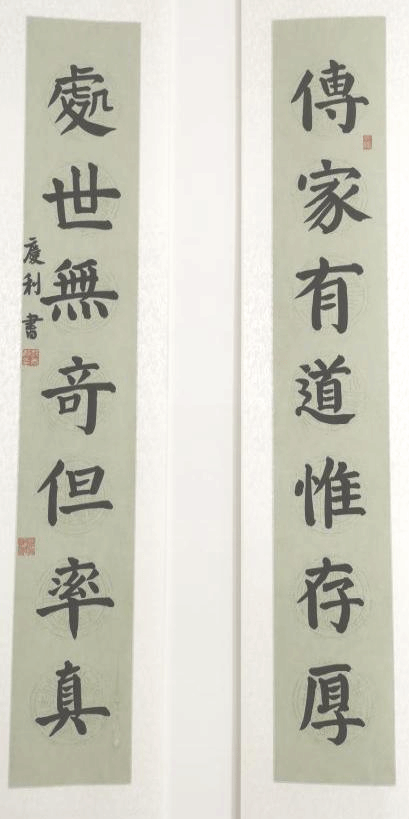 傳家有道惟存厚
處世無奇但率真
慶利書